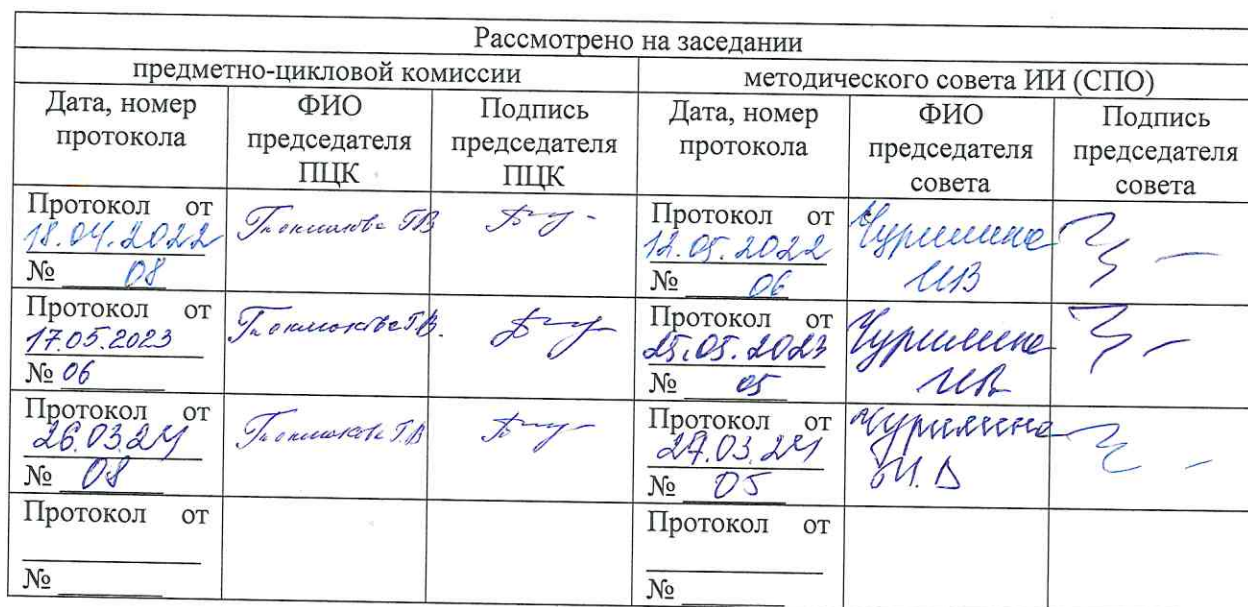 Рассмотрено на заседании
предметно-цикловой комиссии
методического совета ИИ (СПО)
Дата, номер
протокола
ФИО
председателя
ПЦК
Подпись
председателя
ПЦК
Дата, номер
протокола
ФИО
председателя
совета
Подпись
председателя
совета
Протокол от
18.04.2022
№ 08
ГВ
Протокол от
12.05.2022
№ 06
Чурилина
ИВ
Протокол от
17.05.2023
№ 06
Г.В.
Протокол от
25.05.2023
№ 05
Чурилина
ИВ
Протокол от
26.03.24
№ 08
Г.В
Протокол от
03.24
№ 05
Чурилина
И.В
Протокол от
№
Протокол от
№